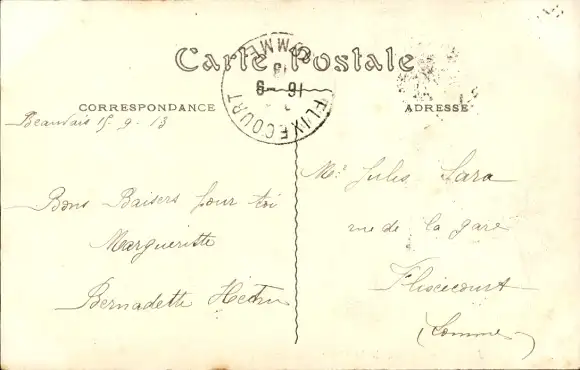 Carte Postale
FLIXECOURT
SOMME
16 - 9
13
CORRESPONDANCE
ADRESSE
Beauvais 15-9-13
Bons Baisers pour toi
Margueritte
Bernadette Hector
Mr Jules Sara
rue de la gare
Flixecourt
(Somme)